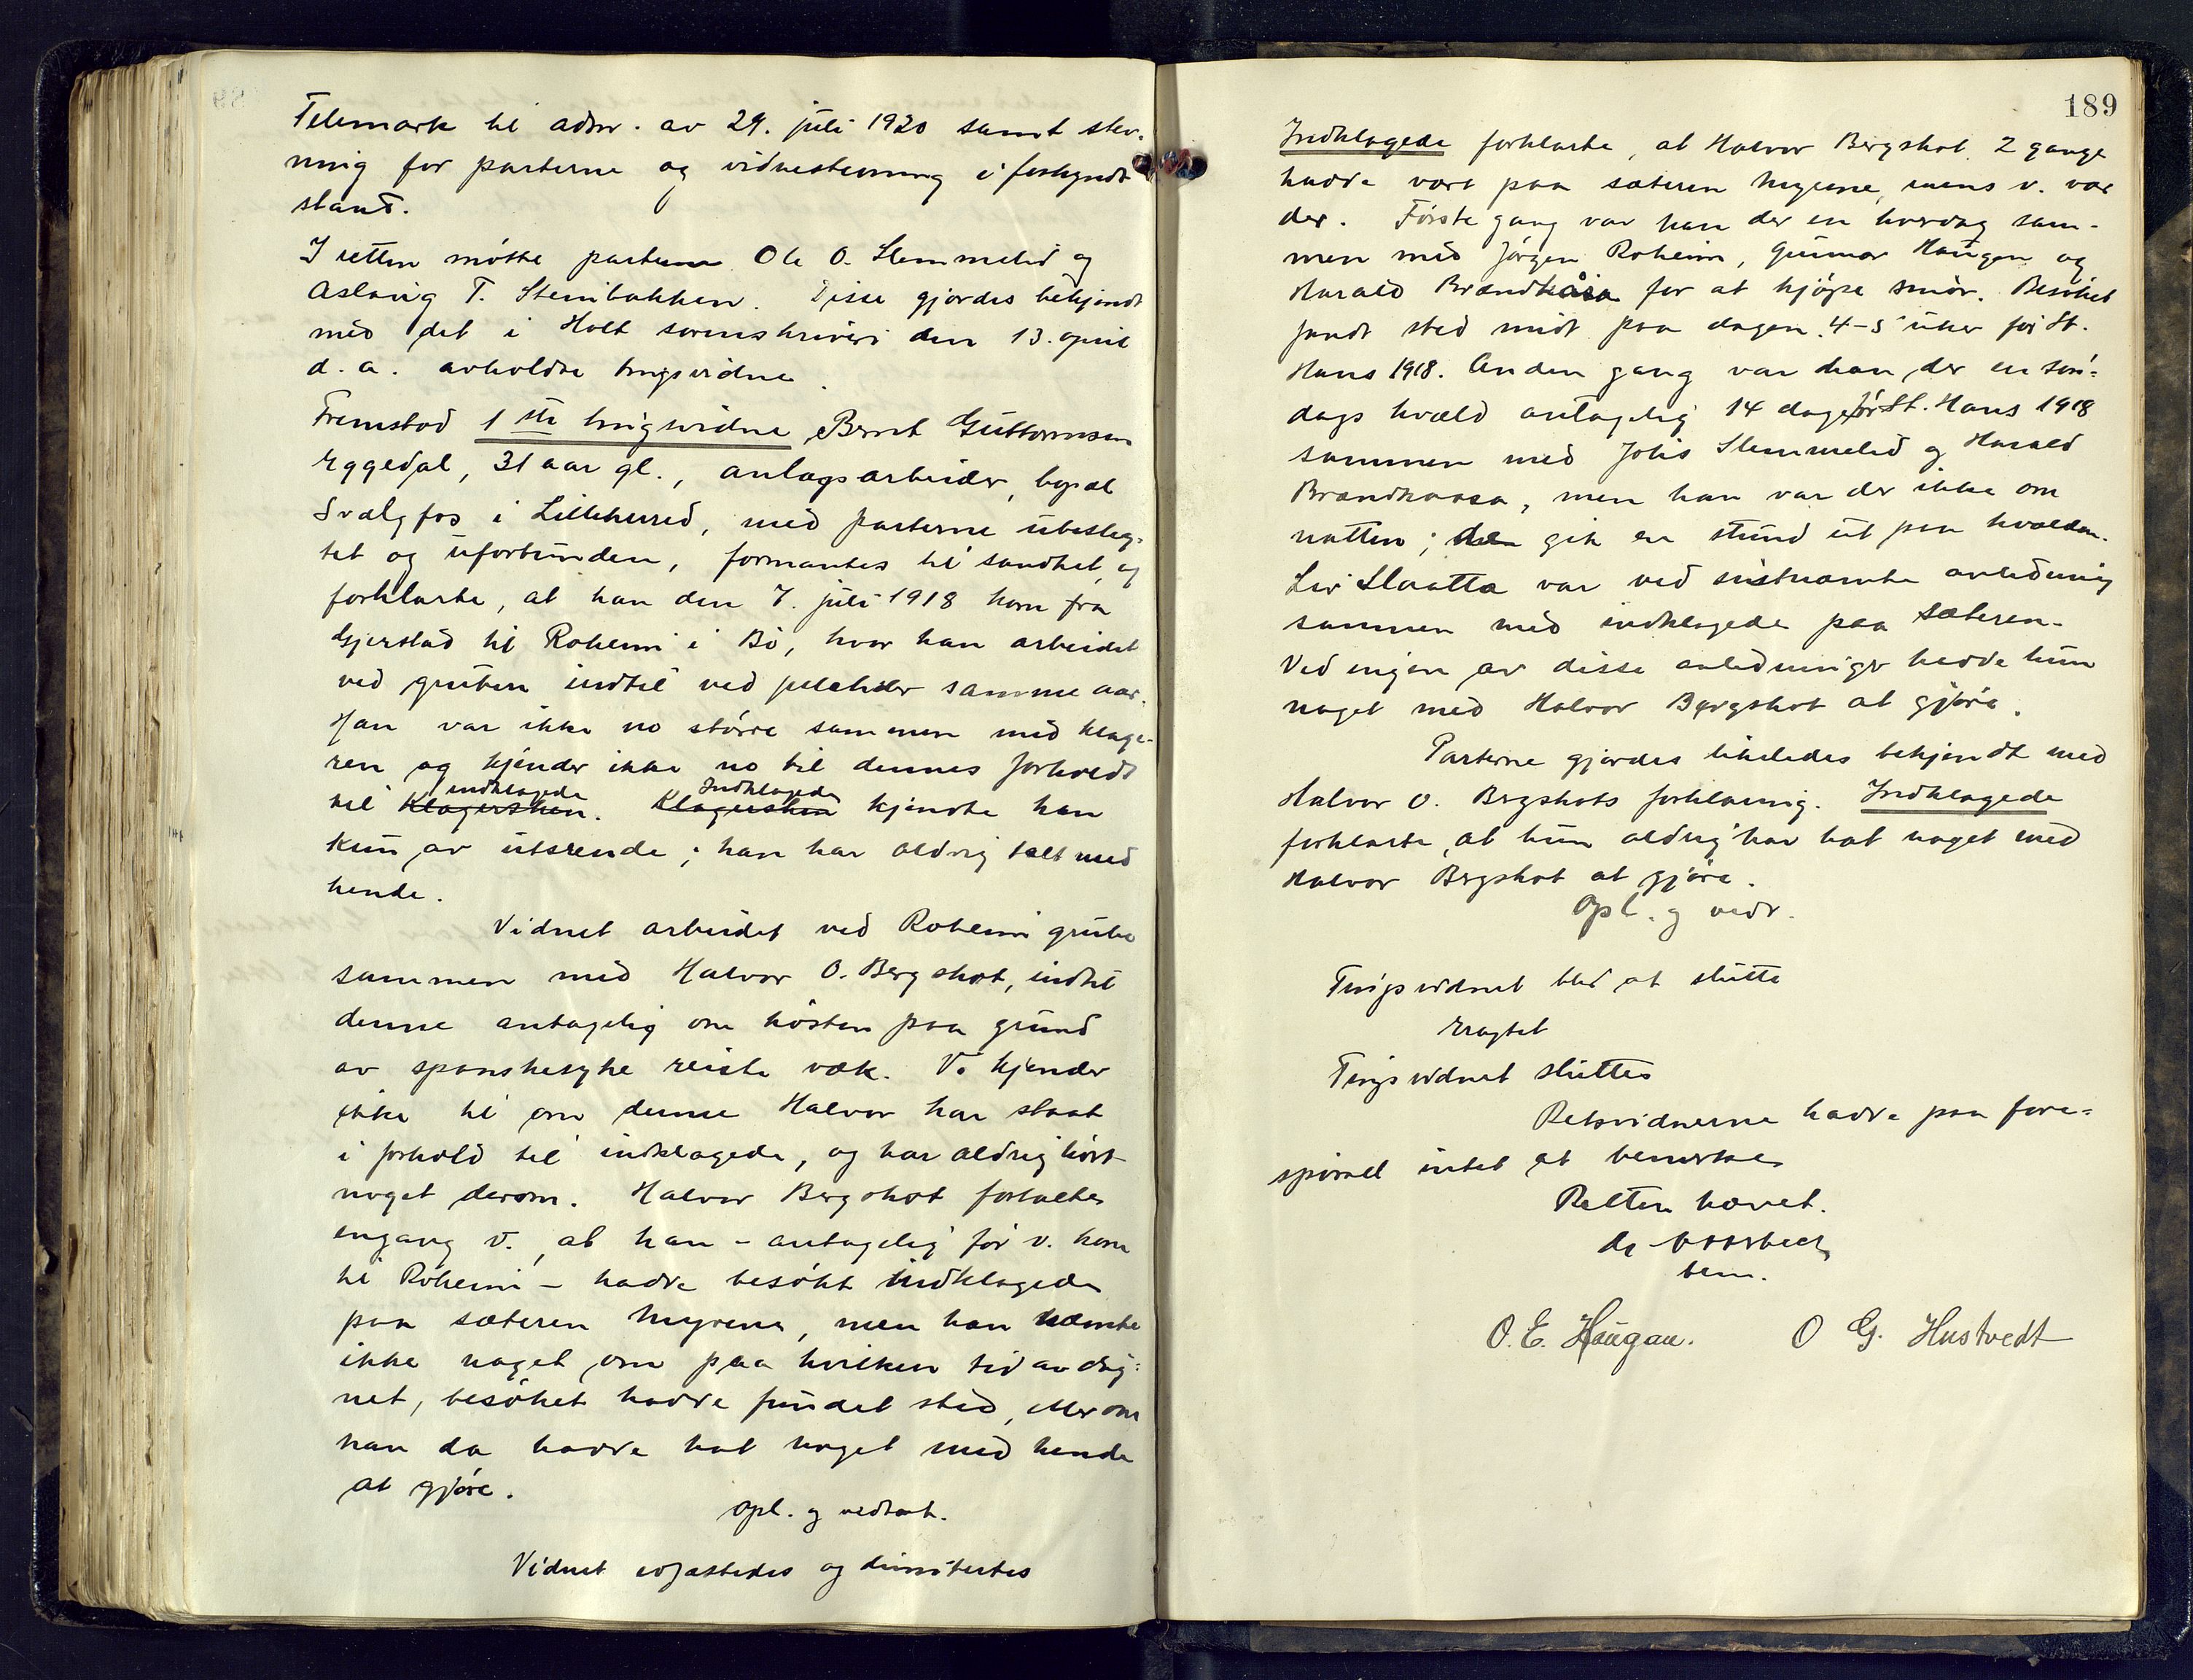 Telemark til adm. av 29. juli 1920 samt stev-
ning for parterne og vidnestevning i forkyndt
stand.
I retten møtte parterne Ole O. Slemmelid og
Aslaug T. Stenibakken. Disse gjordes bekjendt
med det i Holt sorenskriveri den 13. april
d. a. avholdte tingsvidne.
Fremstod 1ste tingsvidne, Bernt Guttormsen
Eggedal, 31 aar gl., anlægsarbeider, bopæl
Svælgfos i Lilleherred, med parterne ubeslæg-
tet og uforbunden, formantes til sandhet, og
forklarte, at han den 7. juli 1918 kom fra
Gjerstad til Roheim i Bø, hvor han arbeidet
ved gruben indtil ved juletider samme aar.
Han var ikke no større sammen med klage-
ren og kjender ikke no til dennes forhold
indklagede Indklagede
til Klagersken. Klagersken kjendte han
kun av utseende; han har aldrig talt med
hende.
Vidnet arbeidet ved Roheim grube
sammen med Halvor O. Bergskot, indtil
denne antagelig om høsten paa grund
av spanskesyke reiste væk. V. kjender
ikke til om denne Halvor har staat
i forhold til indklagede, og har aldrig hørt
noget derom. Halvor Bergskot fortalte
engang v., at han - antagelig før v. kom
til Roheim - hadde besøkt indklagede
paa sæteren Myrene, men han nævnte
ikke noget om paa hvilken tid av døg-
net, besøket hadde fundet sted, eller om
han da hadde hat noget med hende
at gjøre.
Opl. og vedtat.
Vidnet edfæstedes og dimitertes
189
Indklagede forklarte, at Halvor Bergskot 2 gange
hadde vært paa sæteren Myrene, mens v. var
der. Første gang var han der en hverdag sam-
men med Jørgen Roheim, Gunnar Haugen og
Harald Brændkåsa for at kjøpe smør. Besøket
fandt sted midt paa dagen 4-5 uker før St.
Hans 1918. Anden gang var han der en søn-
dags kvæld antagelig 14 dage før St. Hans 1918
sammen med Johs Slemmelid og Harald
Brændkaasa, men han var der ikke om
natten; de gik en stund ut paa kvælden.
Liv Slaatta var ved sistnævnte anledning
sammen med indklagede paa sæteren.
Ved ingen av disse anledninger hadde hun
noget med Halvor Bergskot at gjøre.
Parterne gjordes likeledes bekjendt med
Halvor O. Bergskots forklaring. Indklagede
forklarte, at hun aldrig har hat noget med
Halvor Bergskot at gjøre.
Opl. og vedt.
Tingsvidnet blev at slutte
eragtet
Tingsvidnet sluttes
Retsvidnerne hadde paa fore-
spørsel intet at bemerke
Retten hævet.
bem.
O. E. Haugan. O G. Hustvedt